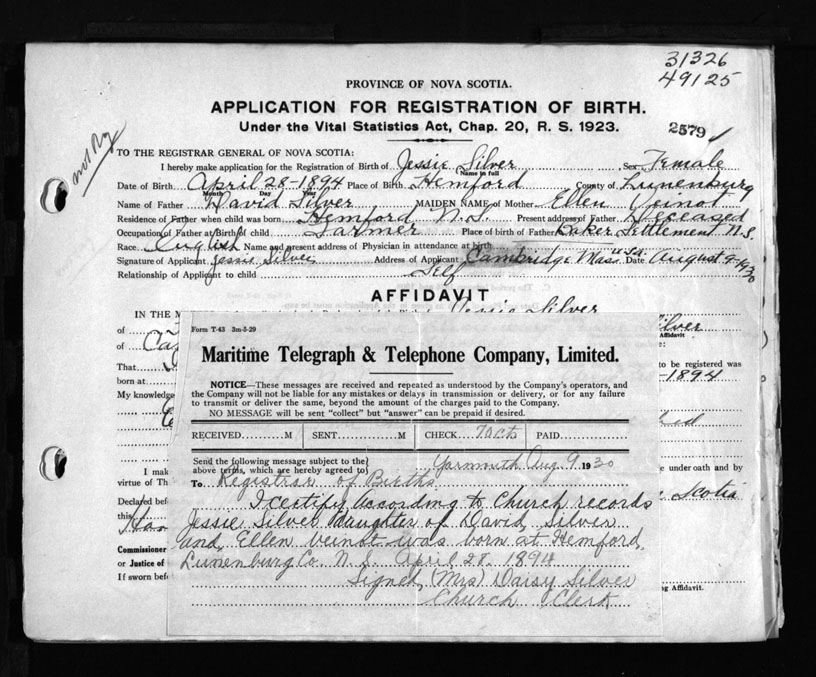 31326
49125
PROVINCE OF NOVA SCOTIA.
APPLICATION FOR REGISTRATION OF BIRTH.
Under the Vital Statistics Act, Chap. 20, R. S. 1923.
2579
TO THE REGISTRAR GENERAL OF NOVA SCOTIA:
I hereby make application for the Registration of Birth of Jessie Silver Sex Female
Name in full
Date of Birth April 28-1894 Place of Birth Hemford County of Lunenburg
Month Day Year
Name of Father David Silver MAIDEN NAME of Mother Ellen Veinot
Residence of Father when child was born Hemford N.S. Present address of Father Deceased
Occupation of Father at Birth of child Farmer Place of birth of Father Baker Settlement N.S.
Race English Name and present address of Physician in attendance at birth
Signature of Applicant Jessie Silver Address of Applicant Cambridge Mass USA Date August 9-1930
Relationship of Applicant to child Self
AFFIDAVIT
IN THE M Jessie Silver
of Silver
Affidavit
of Ca
That to be registered was
born at -1894
My knowledge
I mak e under oath and by
virtue of Th Scotia
Declared bef
this
Commissioner
or Justice of
If sworn bef ng Affidavit.
Form T-43 3m-5-29
Maritime Telegraph & Telephone Company, Limited.
NOTICE—These messages are received and repeated as understood by the Company's operators, and
the Company will not be liable for any mistakes or delays in transmission or delivery, or for any failure
to transmit or deliver the same, beyond the amount of the charges paid to the Company.
NO MESSAGE will be sent "collect" but "answer" can be prepaid if desired.
RECEIVED............M SENT..............M CHECK 70 cts PAID
Send the following message subject to the
above terms, which are hereby agreed to Yarmouth Aug 9 1930
To Registrar of Births
I certify According to Church records
Jessie Silver daughter of David Silver
and Ellen Veinot was born at Hemford,
Lunenburg Co. N.S. April 28. 1894
Signed (Mrs) Daisy Silver
Church Clerk